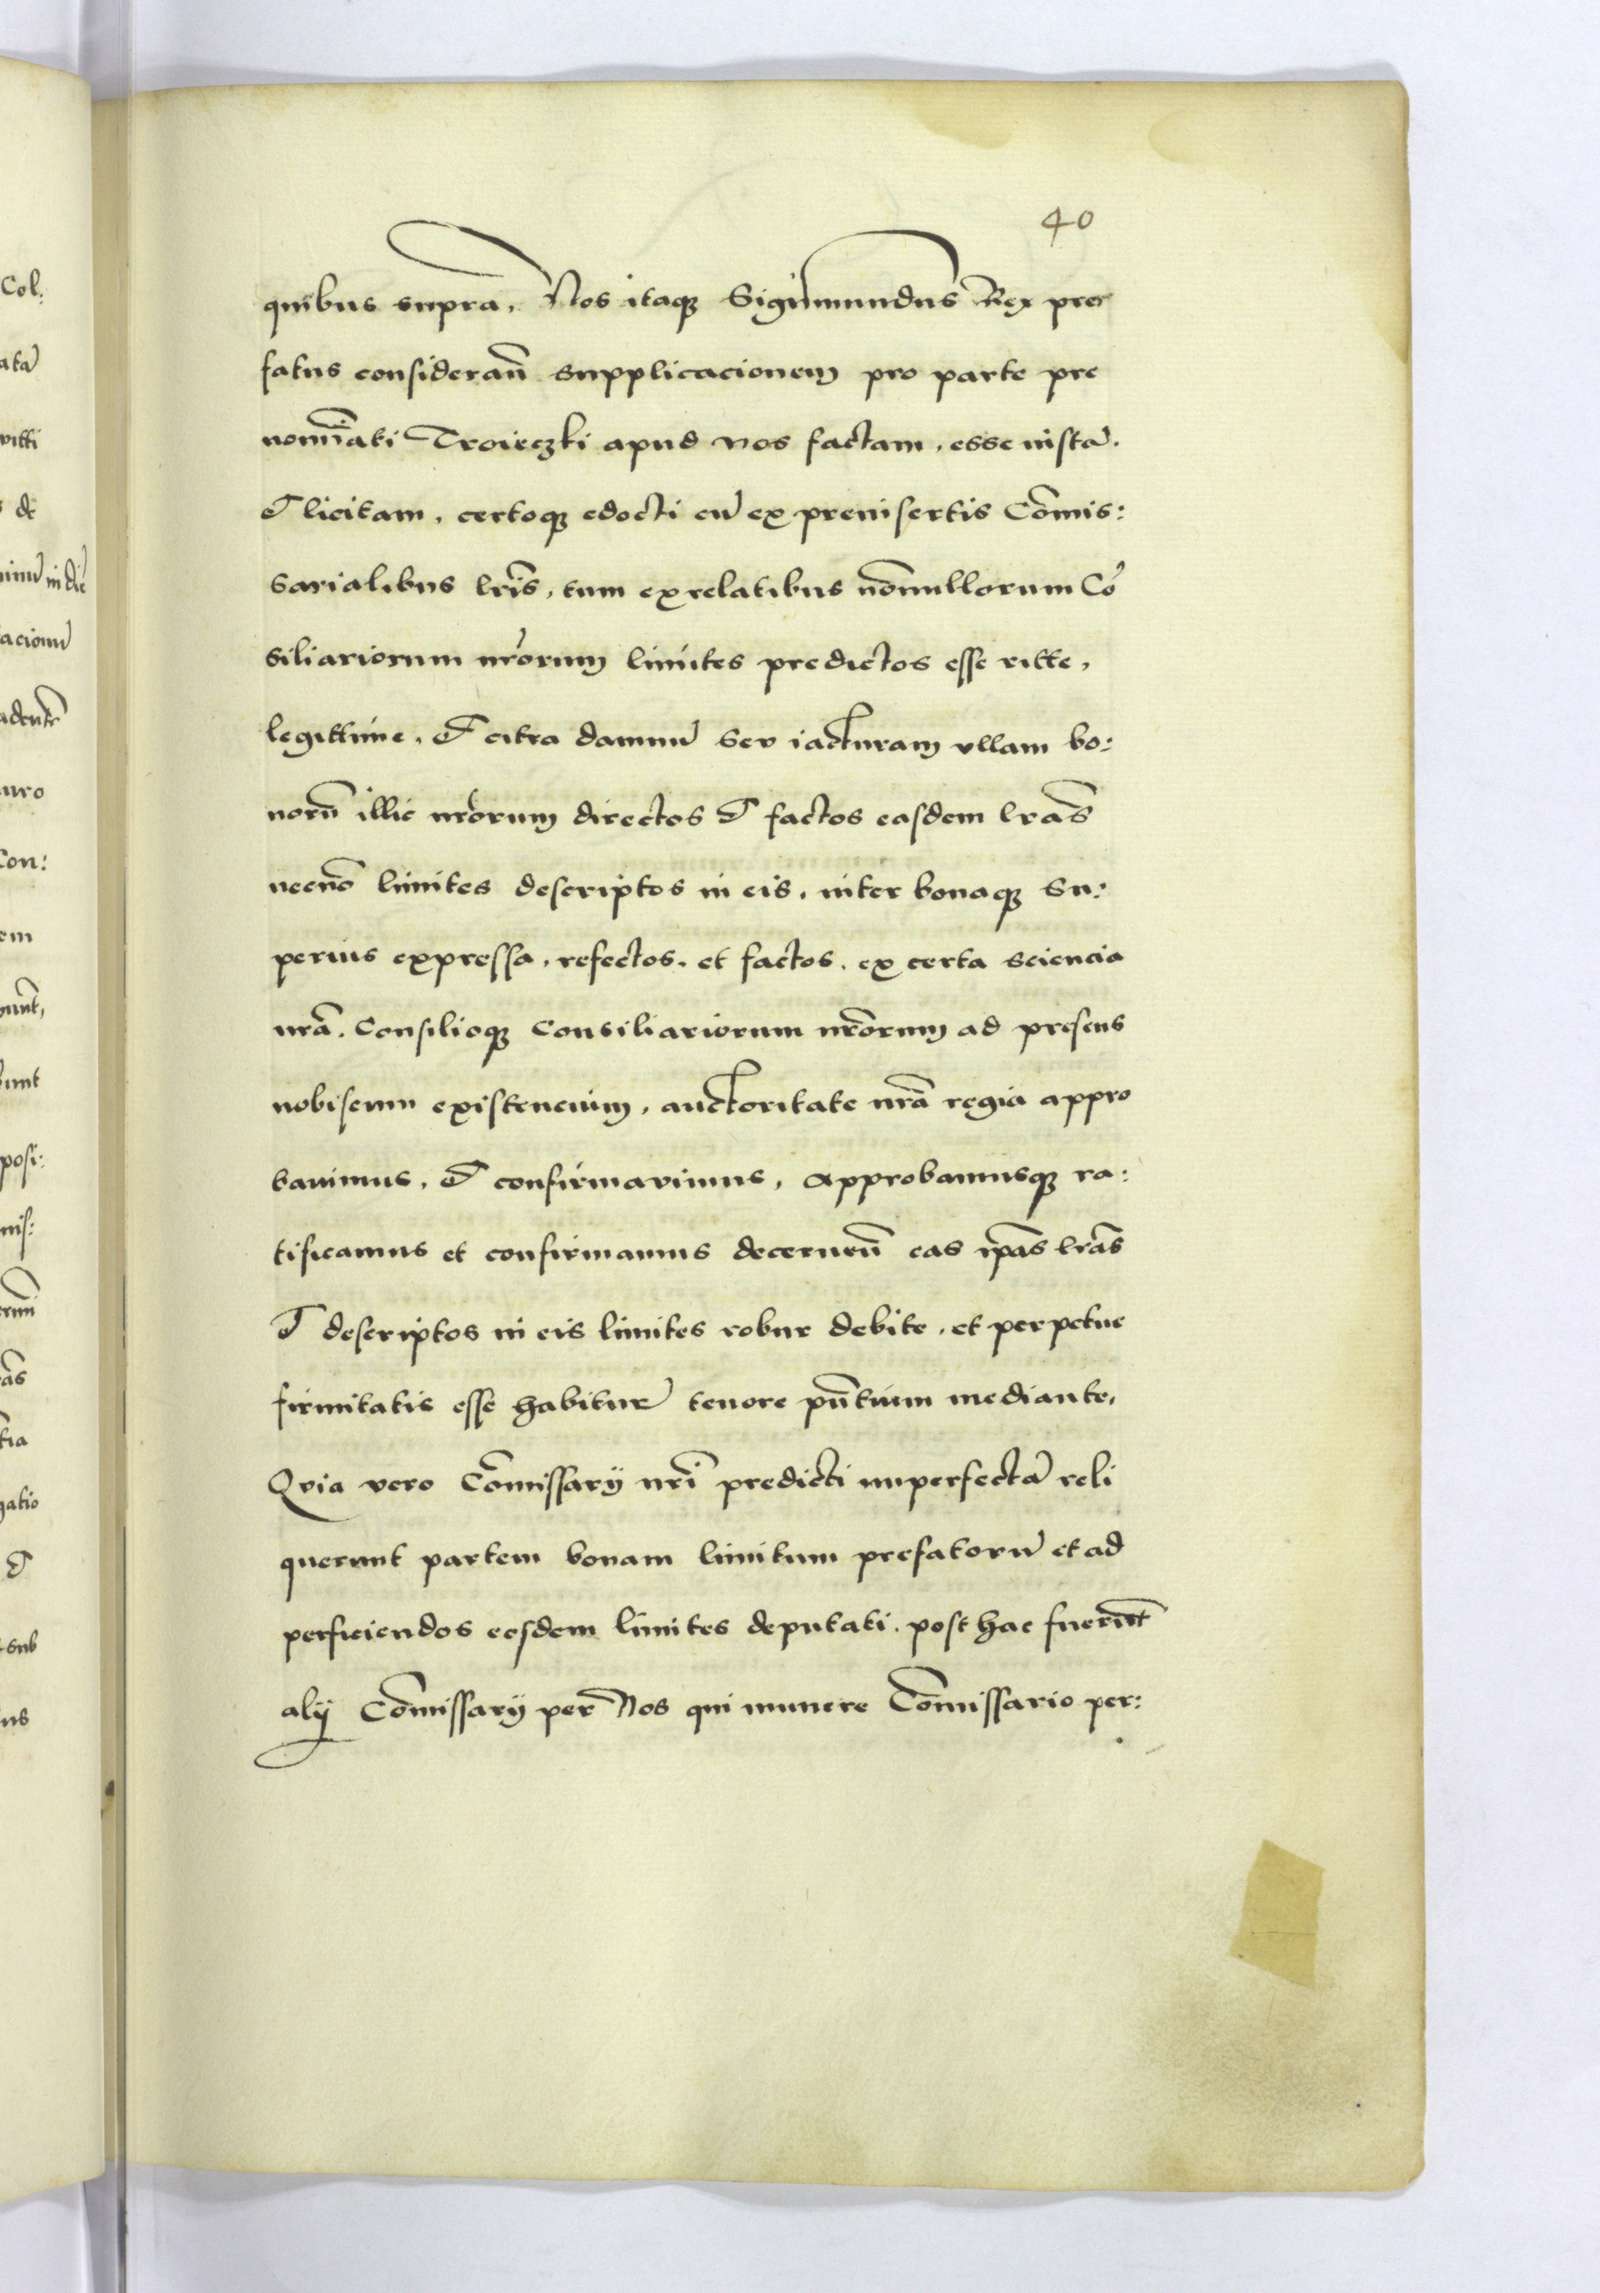 40
quibus supra. Nos itaqꝫ Sigismundus Rex pre
fatus considerañ supplicacionem pro parte pre
nom̃iati Troieczki apud nos factam, esse iustã.
et licitam, certoqꝫ edocti cũ ex preinsertis Com̃is:
sarialibus lr̃is, tum ex relatibus nõnullorum Cõ
siliariorum nr̃orum limites predictos esse ritte,
legittime, et citra damnũ seu iacturam vllam bo:
norũ illic nr̃orum directos et factos easdem lrãs
necnõ limites descriptos in eis, inter bonaqꝫ su:
perius expressa, refectos. et factos. ex certa sciencia
nrã. Consilioqꝫ Consiliariorum nrõrum ad presens
nobiscum existencium, auctoritate nrã regia appro
bauimus, et confirmauimus, approbamusqꝫ ra:
tificamus et confirmamus decerneñ eas ip̃as lrãs
et descriptos in eis limites robur debite, et perpetue
firmitatis esse habitur̃ tenore pñtium mediante,
Qvia vero Com̃issarij nr̃i predicti imperfectã reli
querunt partem bonam limitum prefatorũ et ad
perficiendos eosdem limites deputati. post hac fuerunt
alij Com̃issarij per Nos qui munere Com̃issario per:
Col:
atã
ritti
s de
in die
acionũ
uro
Con:
em
posi:
mis:
gatio
et
sub